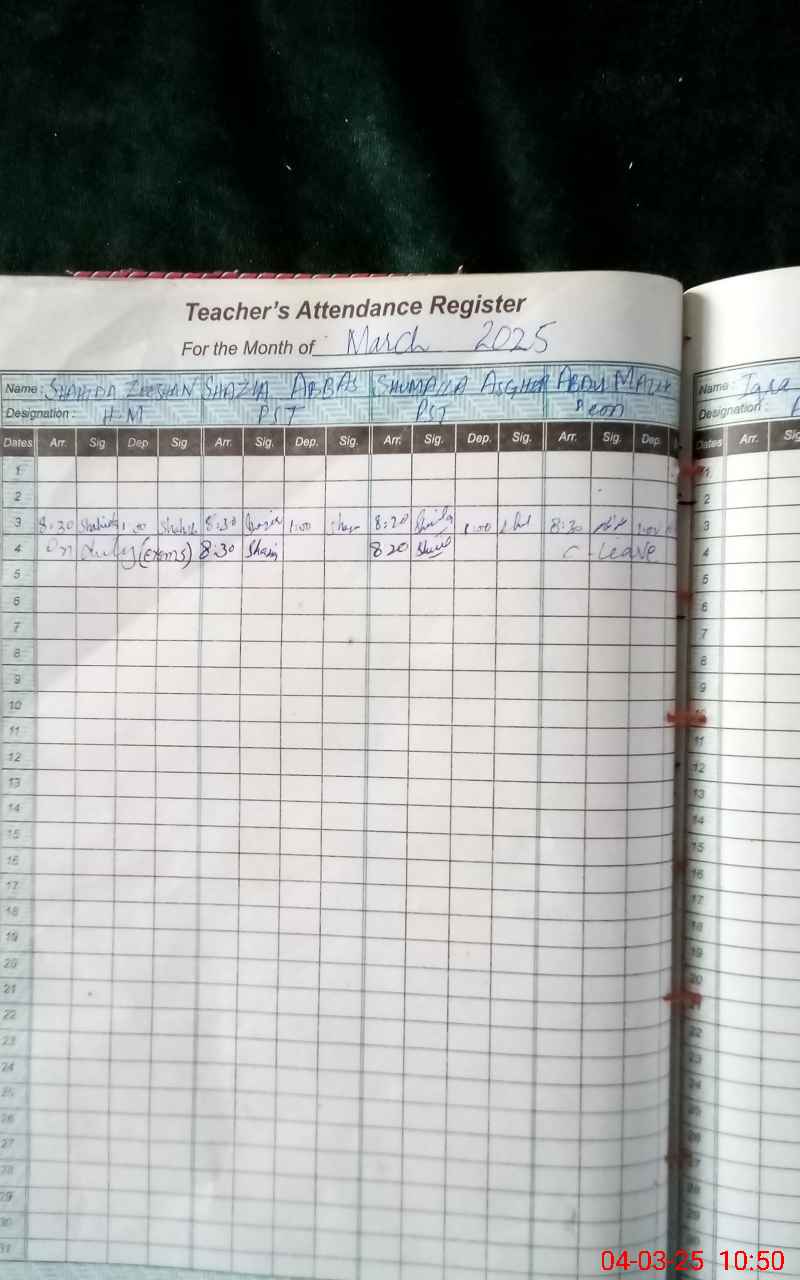 Teacher's Attendance Register
For the Month of March 2025
Name: SHAHIDA ZEESHAN SHAZIA ABBAS SHUMAILA ASGHAR ABDUL MALIK
Designation: H-M PST PST Peon
Dates Arr. Sig Dep Sig Arr. Sig. Dep. Sig. Arr. Sig. Dep. Sig. Arr. Sig. Dep.
1
2
3 8:30 Shahida 1:00 8:30 1:00 8:20 1:00 8:30 1:00
4 On duty (exams) 8:30 8 20 C - Leave
5
6
7
8
9
10
11
12
13
14
15
16
17
18
19
20
21
22
23
24
25
26
27
28
29
30
31
Name: Iqra
Designation:
Dates Arr. Sig
1
2
3
4
5
6
7
8
9
10
11
12
13
14
15
16
17
18
19
20
21
22
23
24
25
26
27
28
29
04-03-25 10:50